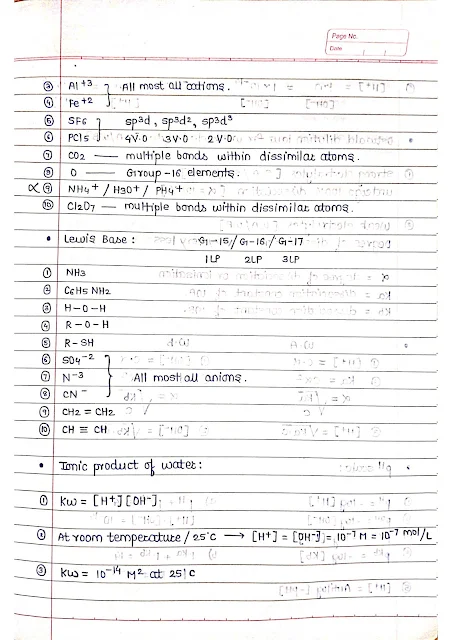 Page No.
Date
③ Al+3 } All most all cations.
④ Fe+2
⑤ SF6 } sp3d, sp3d2, sp3d3
⑥ PCl5 4V.O 3V.O 2V.O
⑦ CO2 — multiple bonds within dissimilar atoms.
⑧ O — Group-16 elements.
α ⑨ NH4+ / H3O+ / PH4+
⑩ Cl2O7 — multiple bonds within dissimilar atoms.
• Lewis Base : G-15/ G-16/ G-17
1LP 2LP 3LP
① NH3
② C6H5NH2
③ H-O-H
④ R-O-H
⑤ R-SH
⑥ SO4-2
⑦ N-3 } All most all anions.
⑧ CN-
⑨ CH2 = CH2
⑩ CH ≡ CH
• Ionic product of water:
① Kw = [H+][OH-]
② At room temperature / 25°C → [H+] = [OH-] = 10-7 M = 10-7 mol/L
③ Kw = 10-14 M2 at 25°C